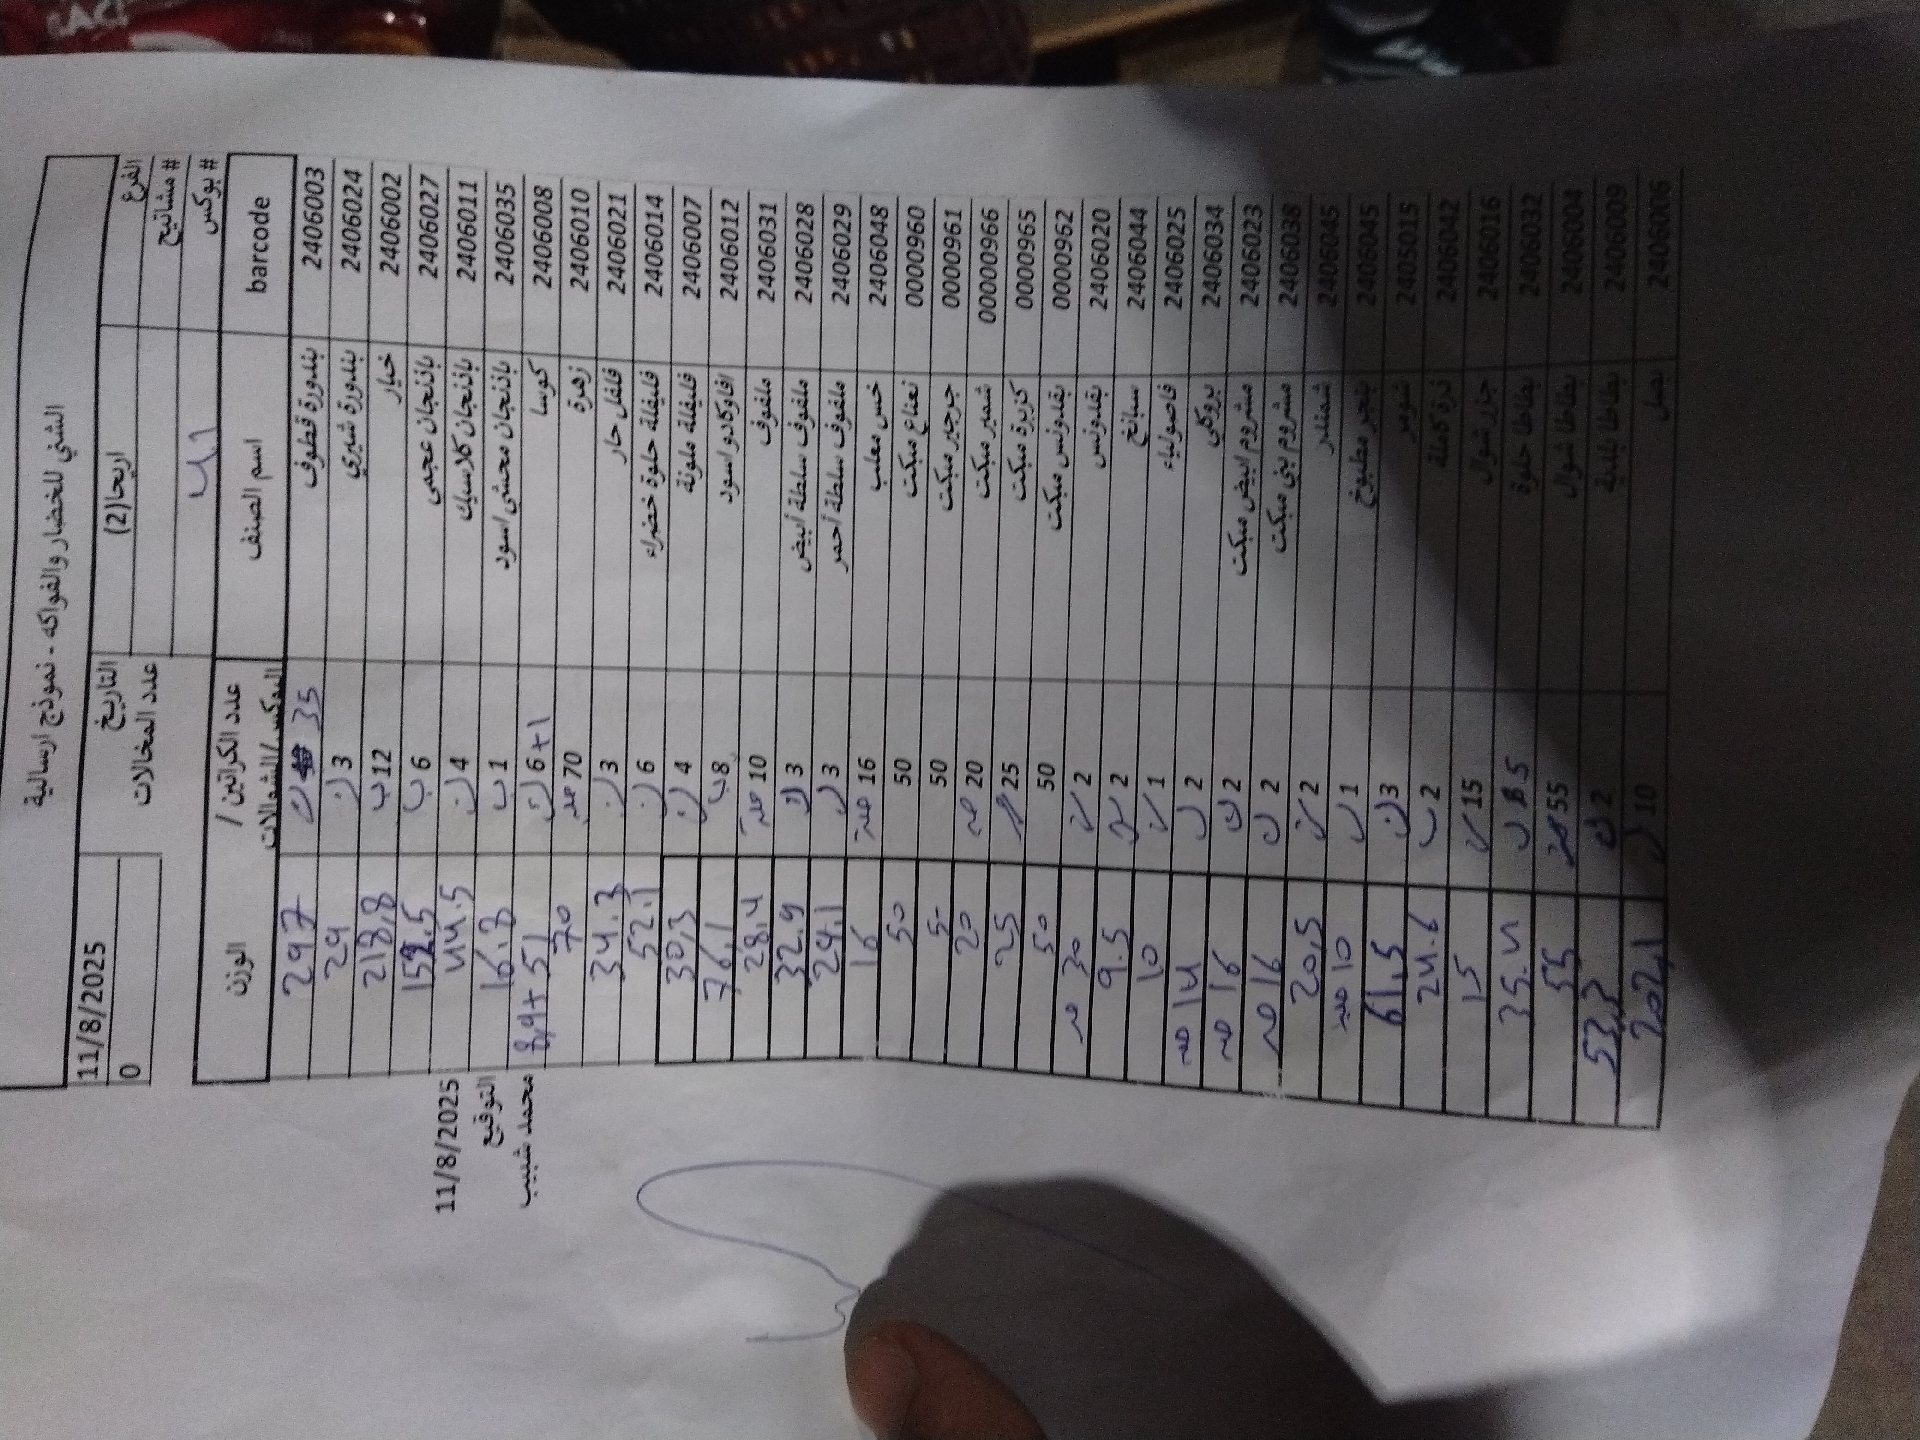 الشني للخضار والفواكه - نموذج ارسالية
الفرع اريحا(2) التاريخ 11/8/2025
# مشاتيح عدد المخالات 0
# بوكس 41
barcode اسم الصنف عدد الكراتين / البوكس/الشوالات الوزن
2406003 بندورة قطوف 35 297
2406024 بندورة شيري 3 29
2406002 خيار 12 ب 218,8
2406027 باذنجان عجمي 6 ب 159.5
2406011 باذنجان كلاسيك 4 44.5
2406035 باذنجان محشي اسود 1 ب 16.8
2406008 كوسا 6+1 8,9+51
2406010 زهرة 70 70
2406021 فلفل حار 3 34.3
2406014 فليفلة حلوة خضراء 6 52.1
2406007 فليفلة ملونة 4 30,3
2406012 افاوكادو اسود 8 ب 76,1
2406031 ملفوف 10 28,4
2406028 ملفوف سلطة أبيض 3 32.9
2406029 ملفوف سلطة أحمر 3 24,1
2406048 خس معلب 16 16
00000960 نعناع مبكت 50 50
00000961 جرجير مبكت 50 50
000000966 شمير مبكت 20 20
00000965 كزبرة مبكت 25 25
00000962 بقدونس مبكت 50 50
2406020 بقدونس 2 30
2406044 سبانخ 2 9.5
2406025 فاصولياء 1 10
2406034 بروكلي 2 14
2406023 مشروم ابيض مبكت 2 16
2406038 مشروم بني مبكت 2 16
2406045 شمندر 2 20,5
2406045 بنجر مطبوخ 1 10
2405015 شومر 3 61,5
2406042 ذرة كاملة 2 24.6
2406016 جزر شوال 15 15
2406032 بطاطا حلوة 5 35.4
2406004 بطاطا شوال 55 55
2406009 بطاطا بلدية 2 53,3
2406006 بصل 10 202,1
11/8/2025
التوقيع
محمد شبيب